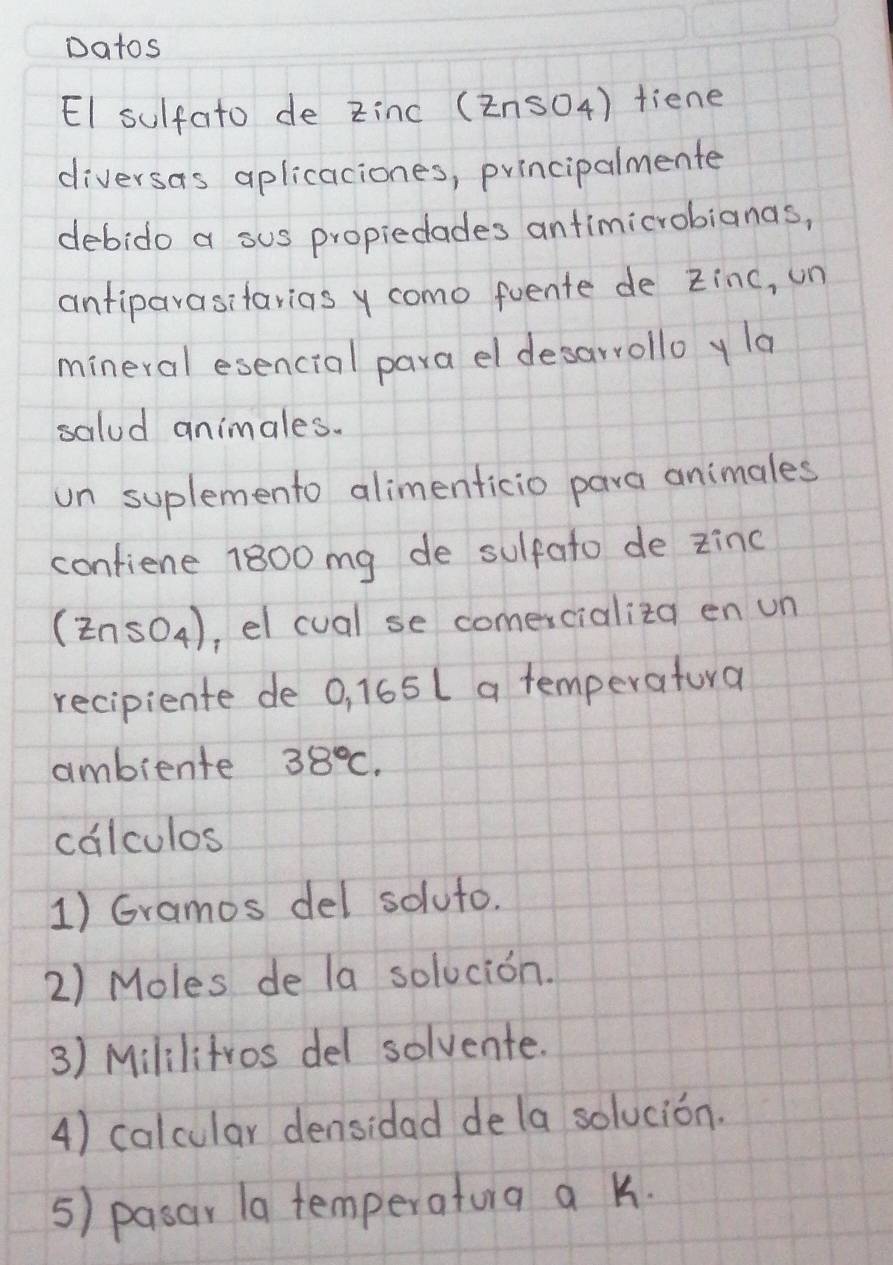 Datos
El sulfato de zinc (ZnSO4) tiene
diversas aplicaciones, principalmente
debido a sus propiedades antimicrobianas,
antiparasitarias y como fuente de zinc, un
mineral esencial para el desarrollo y la
salud animales.
un suplemento alimenticio para animales
contiene 1800 mg de sulfato de zinc
(ZnSO4), el cual se comercializa en un
recipiente de 0,165 L a temperatura
ambiente 38°C.
cálculos
1) Gramos del soluto.
2) Moles de la solución.
3) Mililitros del solvente.
4) calcular densidad de la solución.
5) pasar la temperatura a K.